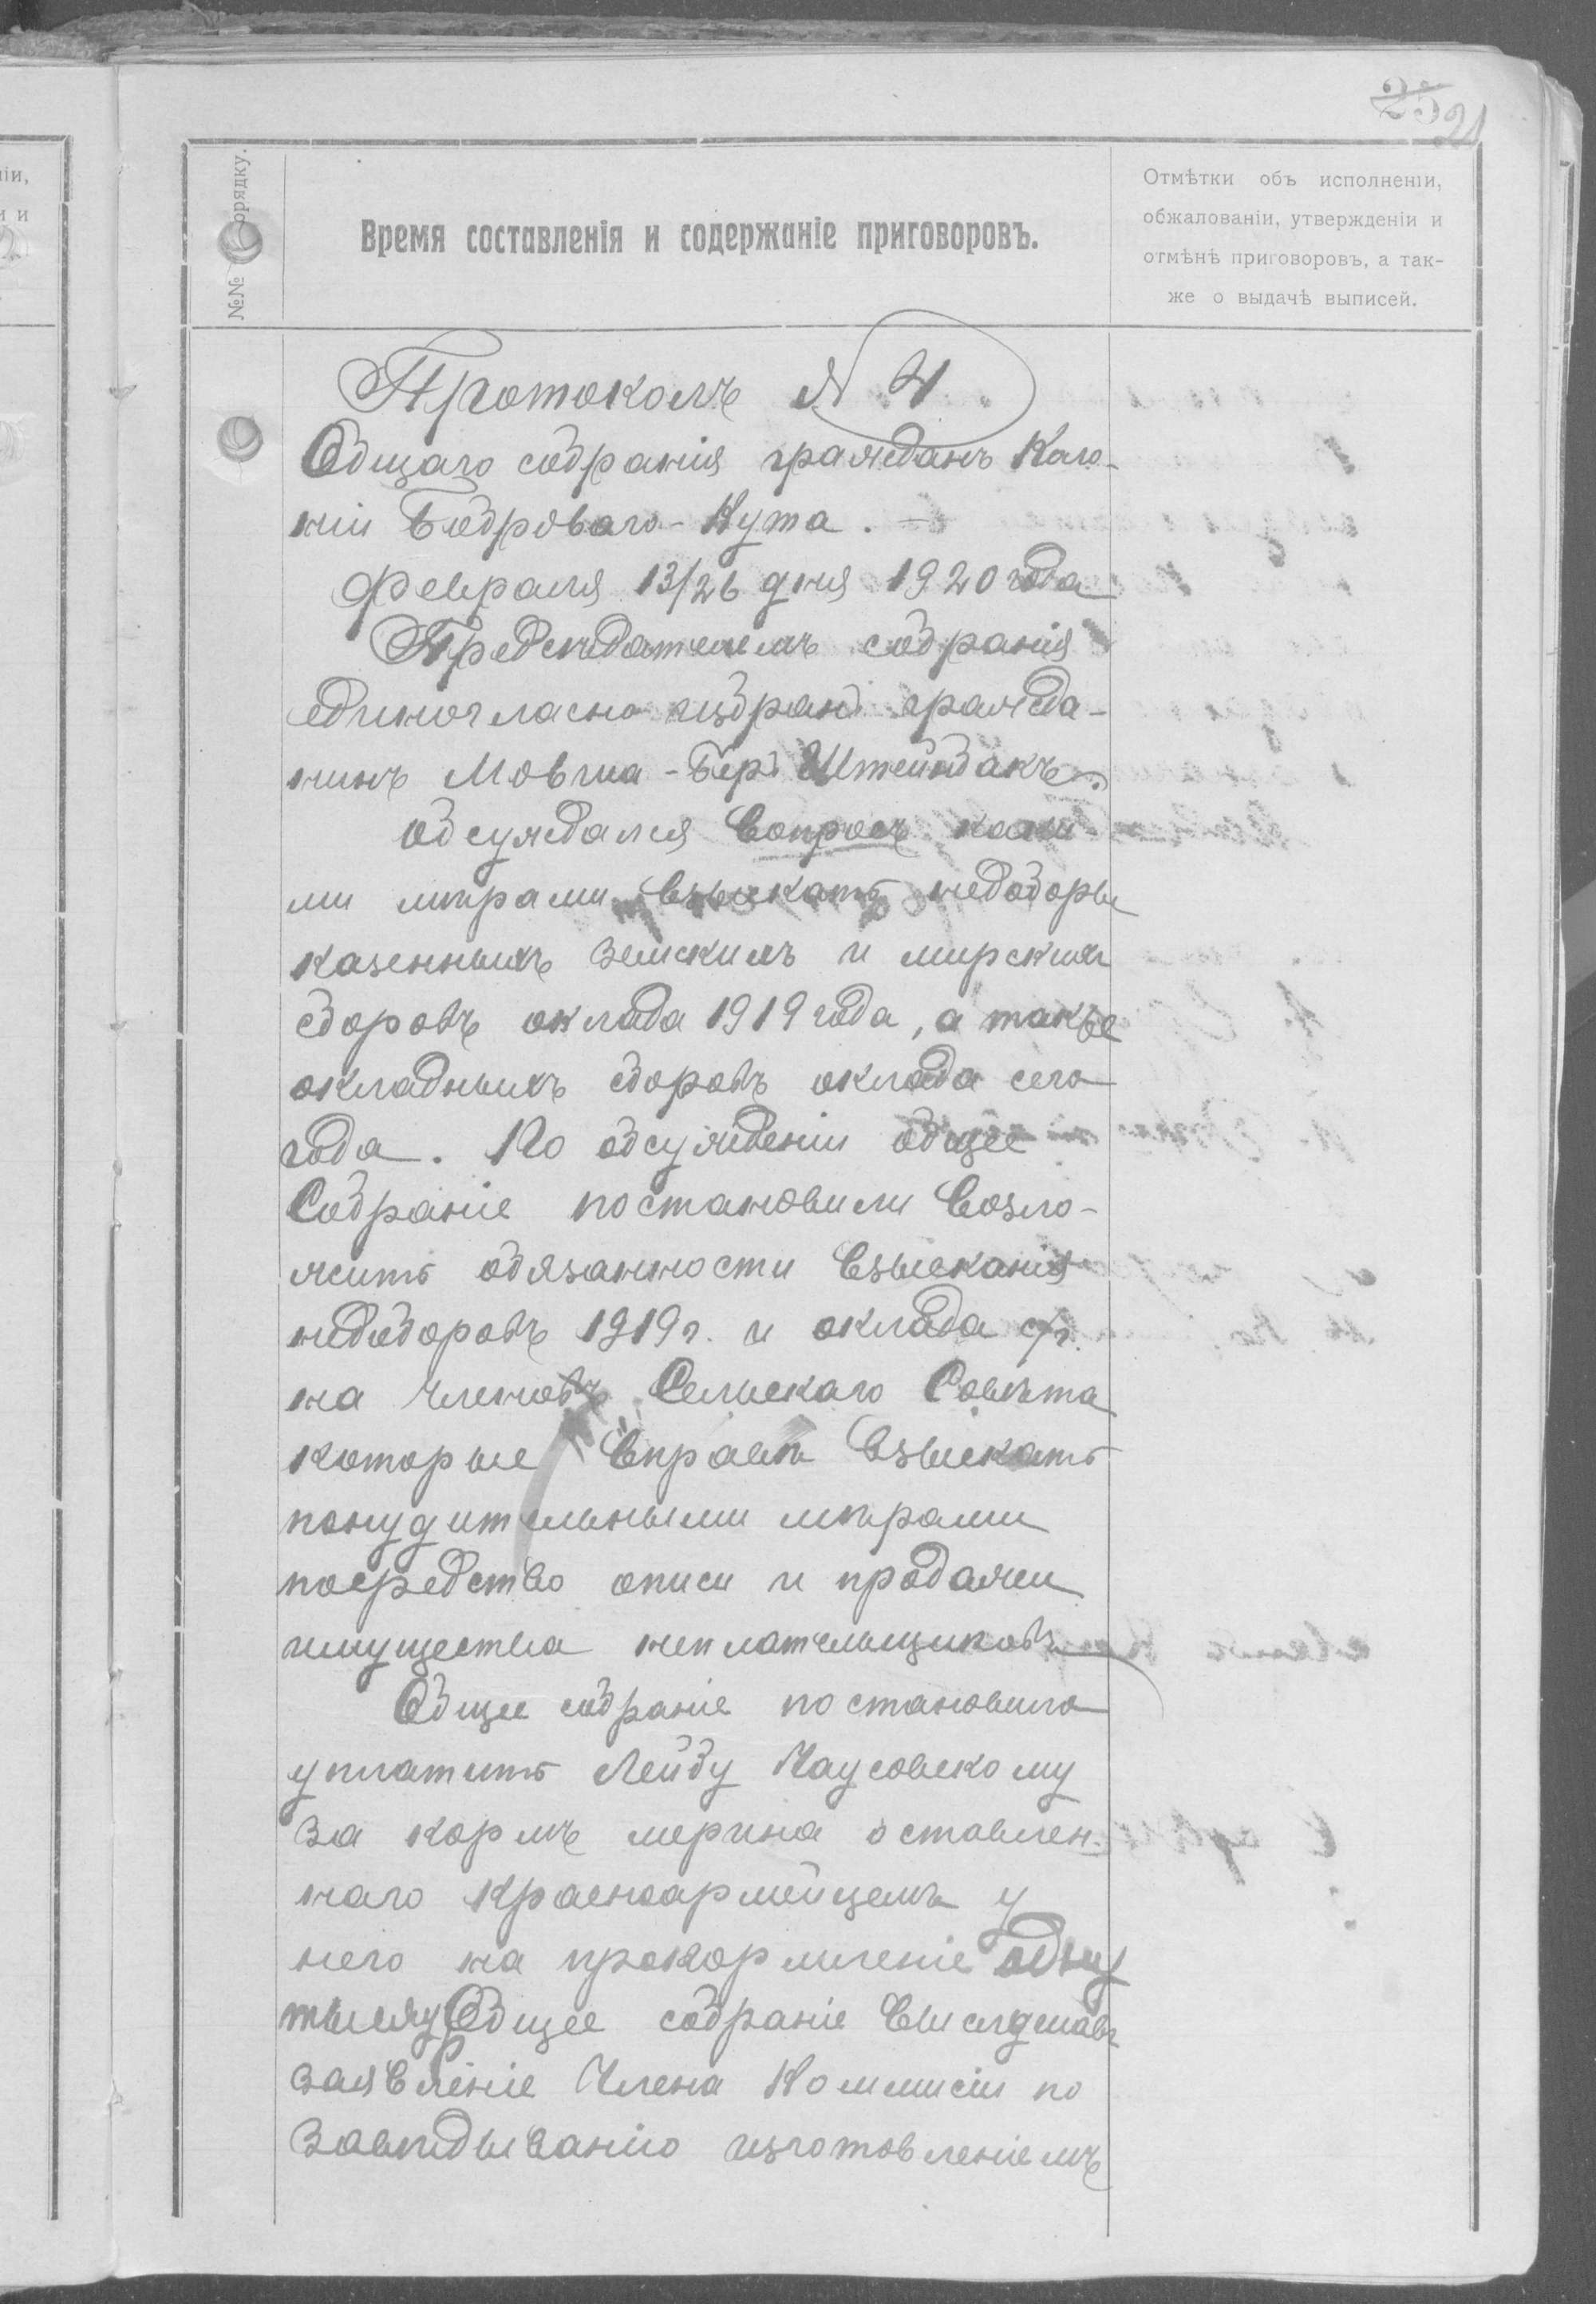 25 21
№№ порядку.
Время составленія и содержаніе приговоровъ.
Отмѣтки объ исполненіи,
обжалованіи, утвержденіи и
отмѣнѣ приговоровъ, а так-
же о выдачѣ выписей.
Протоколъ № 4
Общаго собранія гражданъ Коло-
ніи Боброваго-Кута. -
Февраля 13/26 дня 1920 года
Предсѣдателемъ собранія
единогласно избранъ гражда-
нинъ Мовша-Беръ Штейнбакъ.
Обсуждался вопросъ каки-
ми мѣрами взыскать недоборы
казенныхъ земскихъ и мирскихъ
сборовъ оклада 1919 года, а также
окладныхъ сборовъ оклада сего
года. По обсужденіи общее
Собраніе постановили возло-
жить обязанности взысканія
недоборовъ 1919 г. и оклада с/г.
на членовъ Сельскаго Совѣта
которые вправѣ взыскать
понудительными мѣрами
посредство описи и продажи
имущества неплательщиковъ
Общее собраніе постановило
уплатить Лейбу Паусовскому
за кормъ мерина оставлен-
наго красноармейцемъ у
него на прокормленіе одну
тысячу Общее собраніе выслушавъ
заявленіе Члена Коммисіи по
завѣдыванію изготовленіемъ